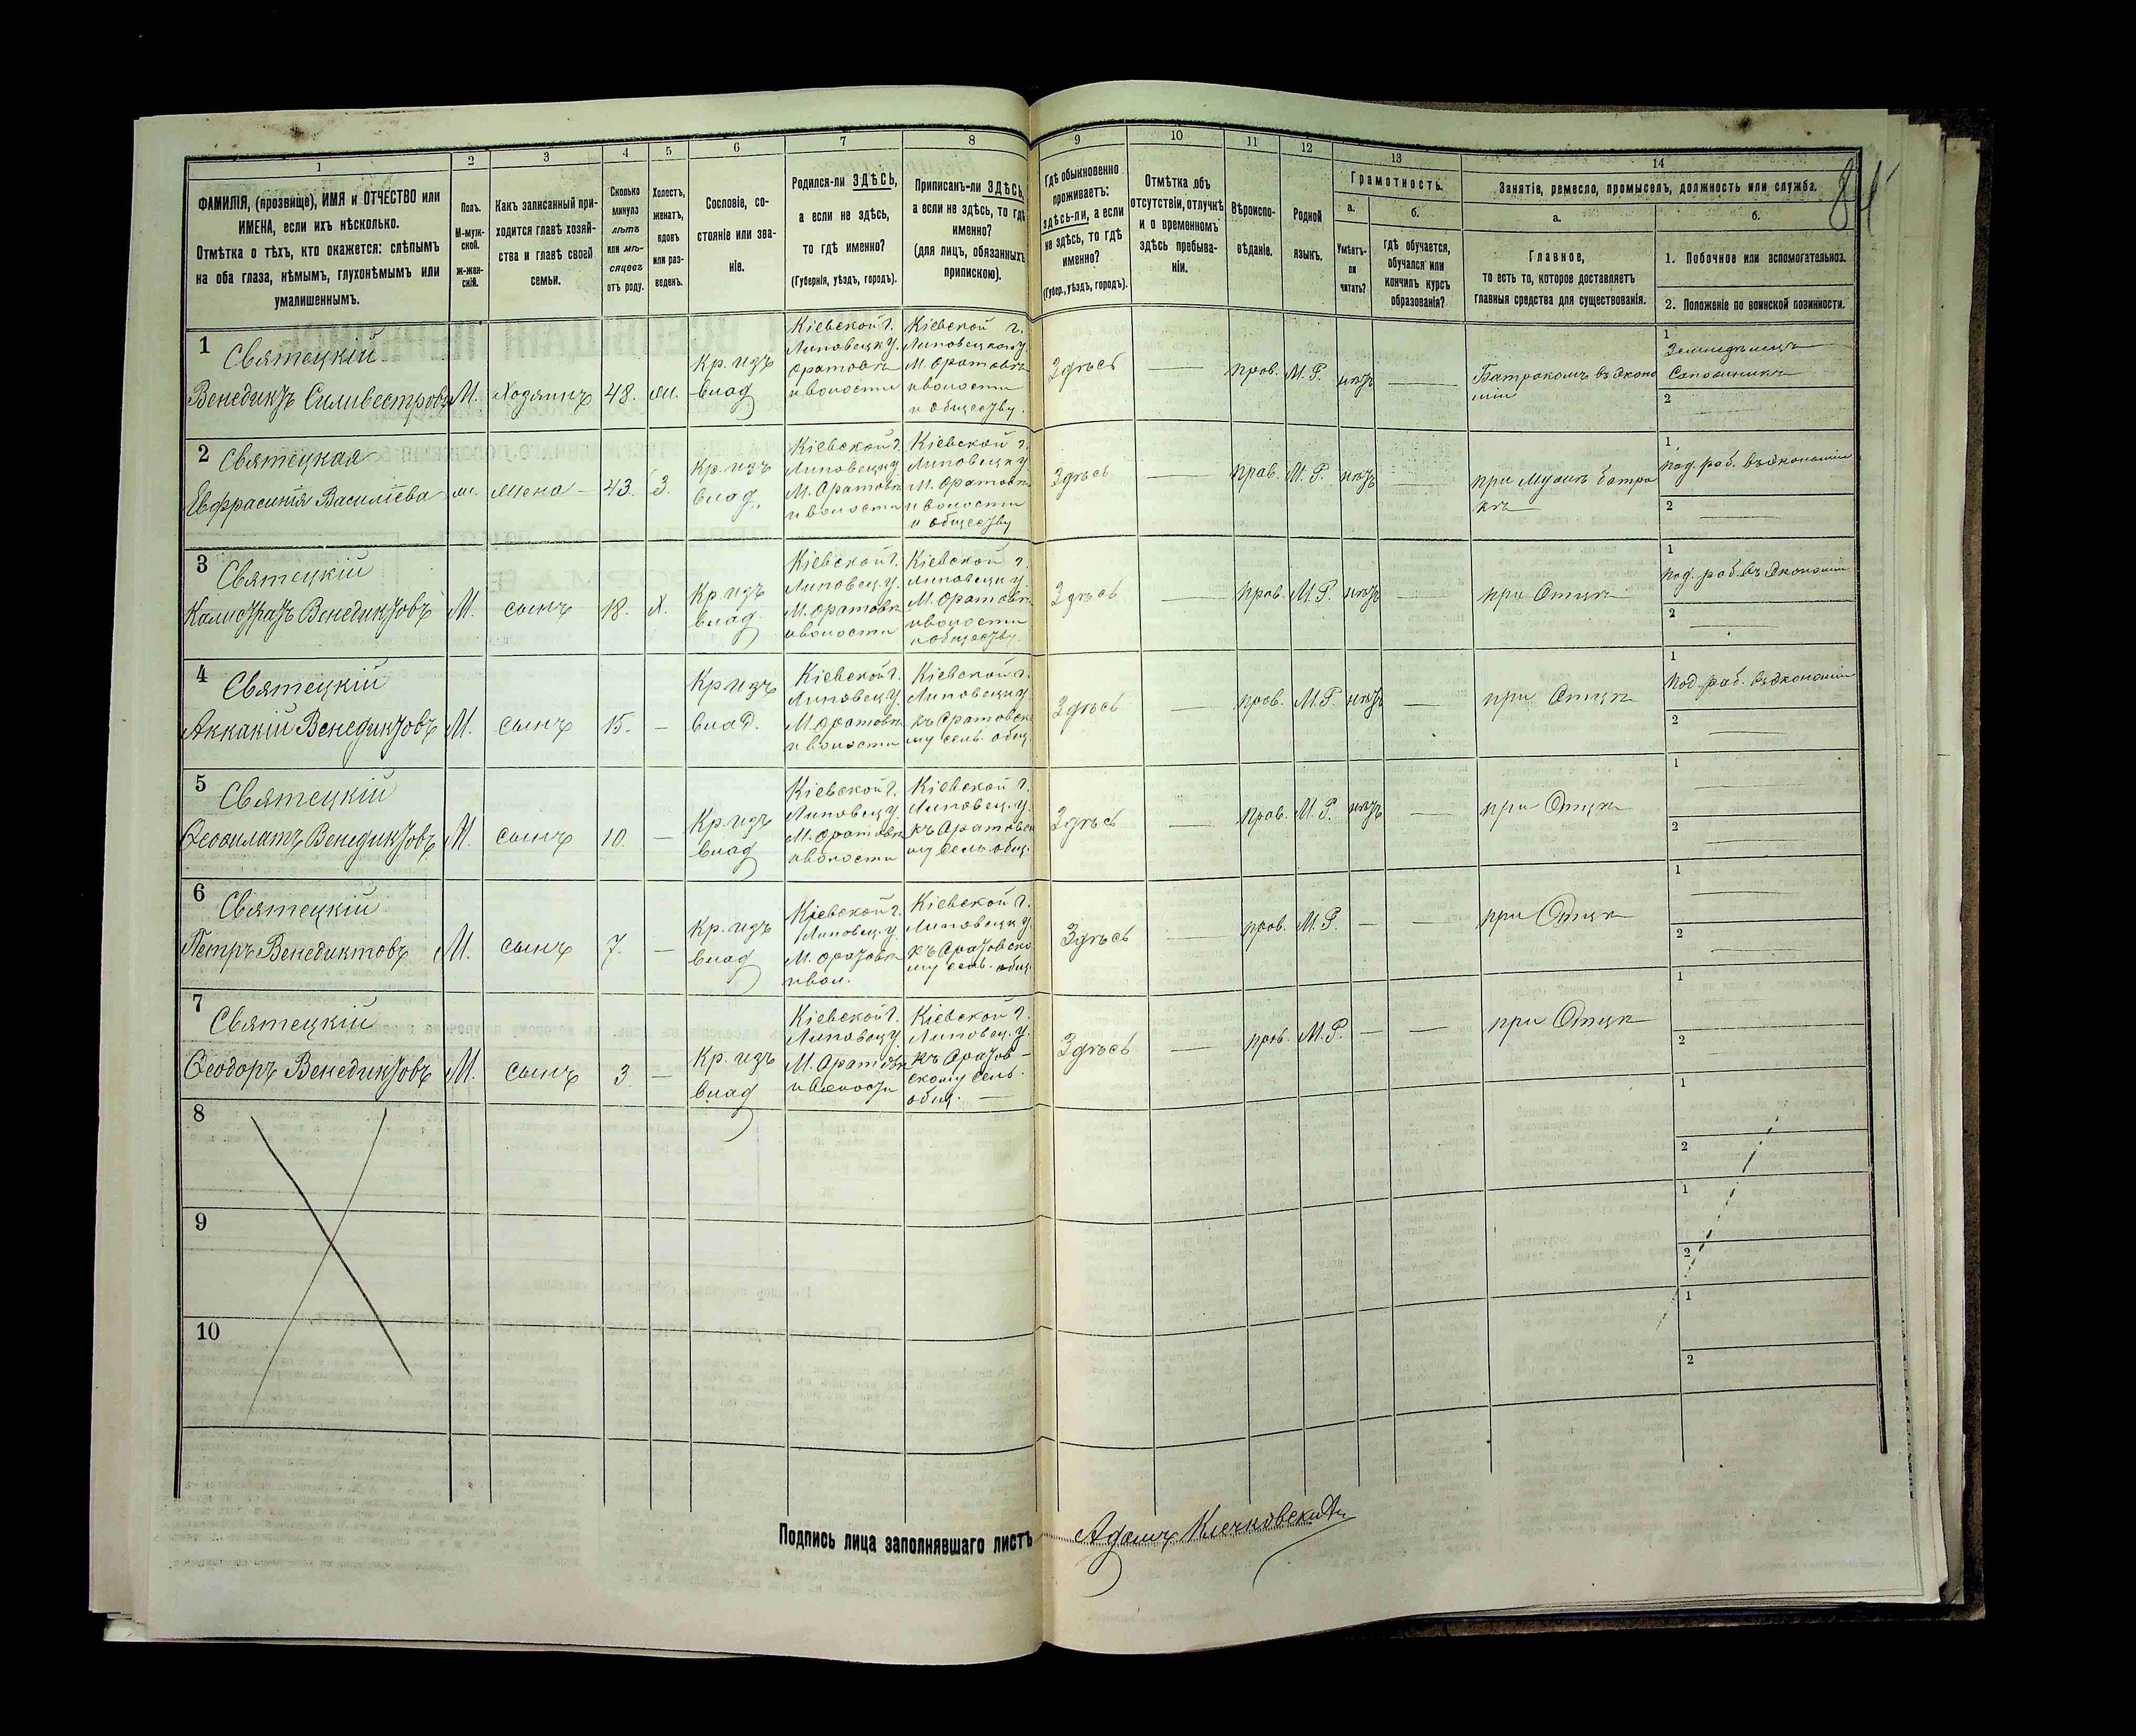 1 2 3 4 5 6 7 8 9 10 11 12 13 14
84
ФАМИЛІЯ, (прозвище), ИМЯ и ОТЧЕСТВО или
ИМЕНА, если ихъ нѣсколько.
Отмѣтка о тѣхъ, кто окажется: слѣпымъ
на оба глаза, нѣмымъ, глухонѣмымъ или
умалишеннымъ.
Полъ.
М-муж-
ской.
Ж-жен-
скій.
Какъ записанный при-
ходится главѣ хозяй-
ства и главѣ своей
семьи.
Сколько
минуло
лѣтъ
или мѣ-
сяцевъ
отъ роду.
Холостъ,
женатъ,
вдовъ
или раз-
веденъ.
Сословіе, со-
стояніе или зва-
ніе.
Родился-ли ЗДѢСЬ,
а если не здѣсь,
то гдѣ именно?
(Губернія, уѣздъ, городъ).
Приписанъ-ли ЗДѢСЬ,
а если не здѣсь, то гдѣ
именно?
(для лицъ, обязанныхъ
припискою).
Гдѣ обыкновенно
проживаетъ:
здѣсь-ли, а если
не здѣсь, то гдѣ
именно?
(Губер., уѣздъ, городъ).
Отмѣтка объ
отсутствіи, отлучкѣ
и о временномъ
здѣсь пребыва-
ніи.
Вѣроиспо-
вѣданіе.
Родной
языкъ.
Грамотность.
а.
Умѣетъ-
ли
читать?
б.
Гдѣ обучается,
обучался или
кончилъ курсъ
образованія?
Занятіе, ремесло, промыселъ, должность или служба.
а.
Главное,
то есть то, которое доставляетъ
главныя средства для существованія.
б.
1. Побочное или вспомогательное.
2. Положеніе по воинской повинности.
1 Святецкій
Венедиктъ Силивестровъ
М. Хозяинъ 48. ж.
Кр. изъ
влад
Кіевской г.
Липовецк у.
Оратовкѣ
и волости
Кіевской г.
Липовецкому у.
М. Оратовкѣ
и волости
и обществу.
Здѣсь — прав. М. Р. нѣтъ —
Батракомъ въ эконо
міи
1
Земледѣлецъ
2 —
2 Святецкая
Евфрасинія Василіева
ж. Жена — 43. З.
Кр. изъ
влад.
Кіевской г.
Липовецк у.
М. Оратовкѣ
и волости
Кіевской г.
Липовецк у
М. Оратовкѣ
и волости
и обществу
Здѣсь — прав. М. Р. нѣтъ —
при Мужѣ батра
кѣ
1
под. раб. въ экономіи
2 —
3 Святецкій
Калистратъ Венедиктовъ
М. сынъ 18. х.
Кр. изъ
влад.
Кіевской г.
Липовец. у.
М. Оратовкѣ
и волости
Кіевской г.
Липовецк у.
М. Оратовкѣ
и волости
и обществу.
Здѣсь — прав. М. Р. нѣтъ —
при Отцѣ
1
под. раб. въ экономіи
2 —
4 Святецкій
Аккакій Венедиктовъ
М. сынъ 15. —
Кр изъ
влад.
Кіевской г.
Липовец у.
М. Оратовкѣ
и волости
Кіевской г.
Липовецк у
къ Оратовско
му сель. общ.
Здѣсь — прав. М. Р. нѣтъ —
при Отцѣ
1
Под. раб. въ экономіи
2 —
5 Святецкій
Ѳеофилатъ Венедиктовъ
М. сынъ 10. —
Кр. изъ
влад
Кіевской г.
Липовец. у.
М. Оратовкѣ
и волости
Кіевской г.
Липовец. у
къ Оратовско
му сель общ.
Здѣсь — прав. М. Р. нѣтъ —
при Отцѣ
1 —
2 —
6 Святецкій
Петръ Венедиктовъ
М. сынъ 7. —
Кр. изъ
влад
Кіевской г.
Липовец. у
М. Оратовкѣ
и вол.
Кіевской г.
Липовецк у
къ Оратовско
му сель. общ.
Здѣсь — прав. М. Р. — —
при Отцѣ
1 —
2 —
7 Святецкій
Ѳеодоръ Венедиктовъ
М. сынъ 3 —
Кр. изъ
влад
Кіевской г.
Липовец у
М. Оратовкѣ
и волости
Кіевской г.
Липовец. у.
къ Оратов-
скому сель.
общ. —
Здѣсь — прав. М. Р. — —
при Отцѣ
1 —
2 —
8
1
2
9
1
2
10
1
2
Подпись лица заполнявшаго листъ Адамъ Клечковскій